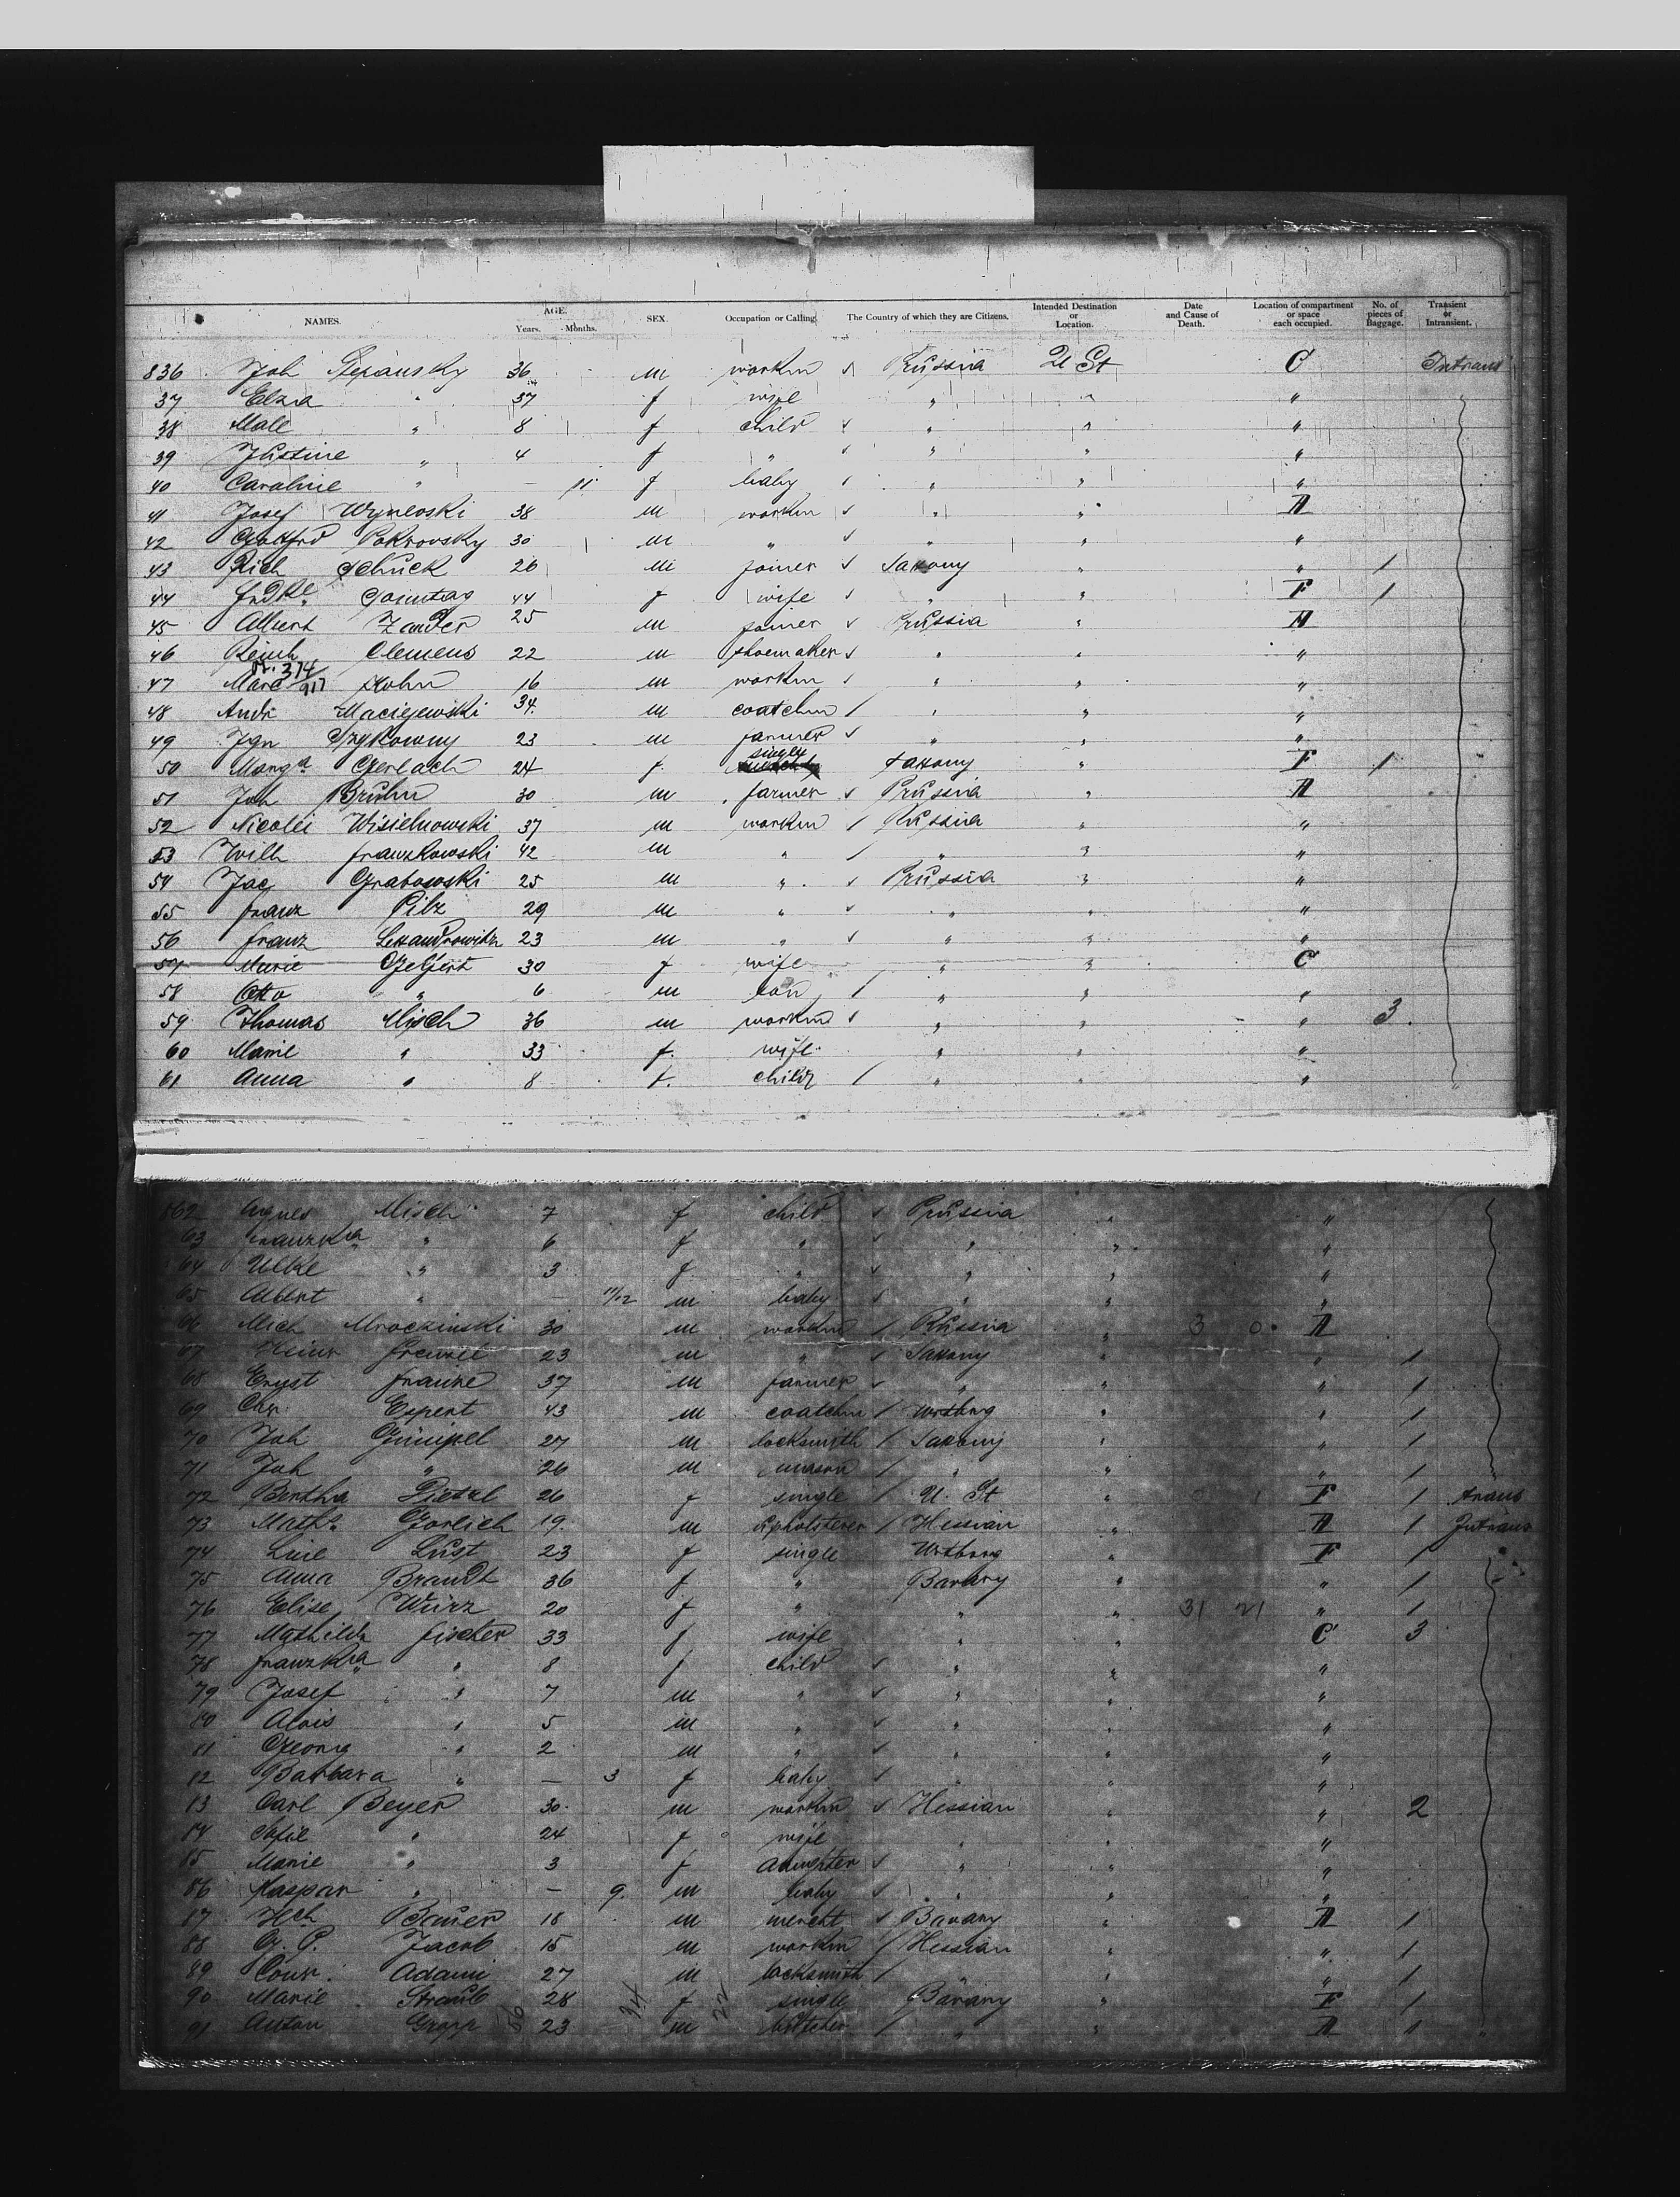 NAMES. AGE. Years. Months. SEX. Occupation or Calling. The Country of which they are Citizens. Intended Destination or Location. Date and Cause of Death. Location of compartment or space each occupied. No. of pieces of Baggage. Transient or Intransient.
836 Joh Stepansky 36 m workm Russia U St C Intrans
37 Elza " 37 f wife " " "
38 Mall " 8 f child " " "
39 Justine " 4 f " " " "
40 Caroline " — 11 f baby " " "
41 Josef 38 m workm " " A
42 Gottfrd Pokrovsky 30 m " " " "
43 Rich Schuck 26 m joiner Saxony " " 1
44 Frdke Sonntag 44 f wife " " F 1
45 Albert Zander 25 m joiner Prussia " A
46 Reinh Clemens 22 m shoemaker " " "
47 Marc Kohn 16 m workm " " "
48 Andr Maciejewski 34 m coatchm " " "
49 Ign 23 m farmer " " "
50 Marga Gerlach 24 f. single Saxony " F 1
51 Joh Bruhn 30 m farmer Prussia " A
52 Nicolei Wisielnowski 37 m workm Russia " "
53 Wilh Franzkowski 42 m " " " "
54 Jac Grabowski 25 m " Prussia " "
55 Franz Pilz 29 m " " " "
56 Franz Lexandrowitz 23 m " " " "
57 Marie Geljert 30 f wife " " C
58 Otto " 6 m son " " "
59 Thomas Misch 36 m workm " " " 3
60 Marie " 33 f. wife " " "
61 Anna " 8 f. child " " "
862 Agnes Misch 7 f child Prussia " "
63 Franzka " 6 f " " " "
64 Ulke " 3 f " " " "
65 Albert " — 11/12 m baby " " "
66 Mich Mroczinski 30 m workm Russia " 3 0 A
67 Heinr Frenzel 23 m " Saxony " " 1
68 Ernst Franke 37 m farmer " " " 1
69 Chr. Espert 43 m coatchm Wrtbrg " " 1
70 Joh Gümpel 27 m locksmith Saxony " " 1
71 Joh " 26 m mason " " " 1
72 Bertha Dietzel 26 f single U. St " F 1 trans
73 Maths Gorlich 19. m upholsterer Hessian " A 1 Intrans
74 Luie Lust 23 f single Wrtbrg " F 1
75 Anna Brandt 36 f " Bavary " " 1
76 Elise Würz 20 f " " " 31 21 " 1
77 Mathilde Fischer 33 f wife " " C 3
78 Franzka " 8 f child " " "
79 Josef " 7 m " " " "
80 Alois " 5 m " " " "
81 Georg " 2 m " " " "
82 Barbara " — 3 f baby " " "
83 Carl Beyer 30 m workm Hessian " " 2
84 Sofie " 24 f wife " " "
85 Marie " 3 f daughter " " "
86 Kaspar " — 9 m baby " " "
87 Hch Bauer 18 m mercht Bavary " A 1
88 G. P. Jacob 15 m workm Hessian " " 1
89 Conr. Adami 27 m locksmith " " 1
90 Marie Straub 28 f single Bavary " F 1
91 Anton Gropp 23 m butcher " " A "